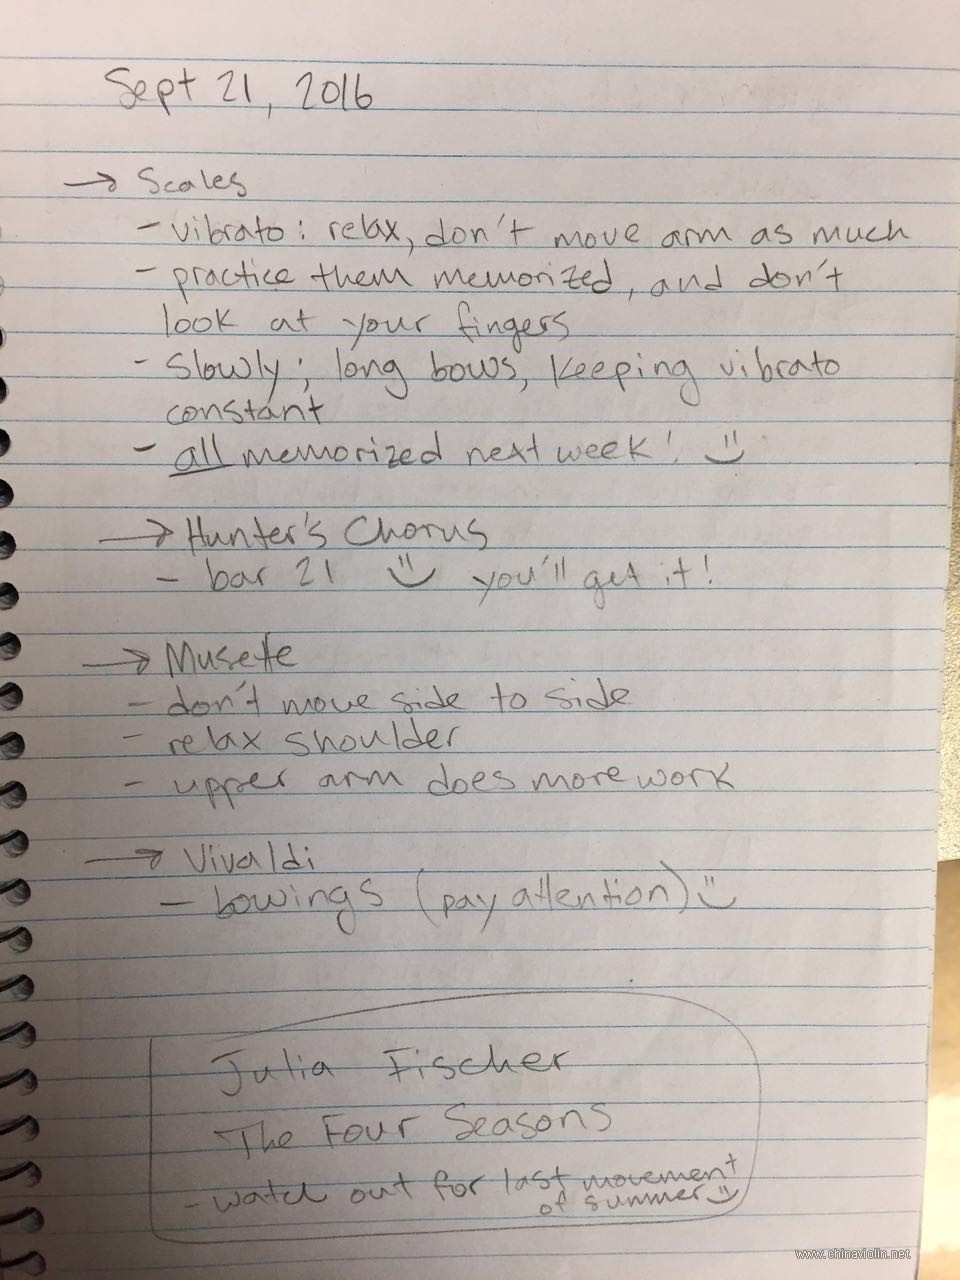 Sept 21, 2016
→ Scales
- vibrato: relax, don't move arm as much
- practice them memorized, and don't
look at your fingers
- Slowly; long bows, keeping vibrato
constant
- all memorized next week! :)
→ Hunter's Chorus
- bar 21 :) you'll get it!
→ Musette
- don't move side to side
- relax shoulder
- upper arm does more work
→ Vivaldi
- bowings (pay attention) :)
Julia Fischer
The Four Seasons
- watch out for last movement
of summer :)
www.chinaviolin.net